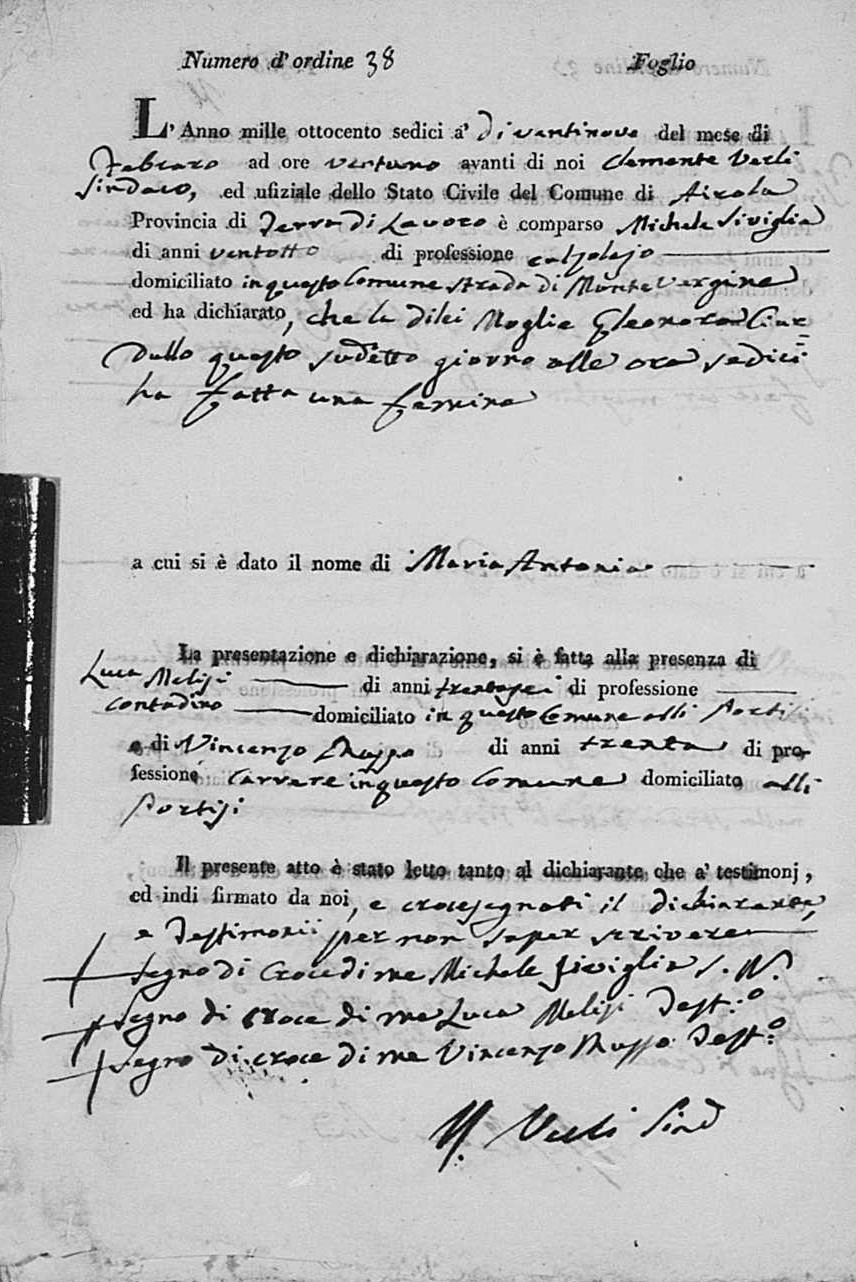 Numero d'ordine 38 Foglio
L'Anno mille ottocento sedici a' di ventinove del mese di
Febraro ad ore ventuno avanti di noi Clemente Verli
Sindaco, ed ufiziale dello Stato Civile del Comune di Airola
Provincia di Terra di Lavoro è comparso Michele Siviglia
di anni ventotto di professione calzolajo
domiciliato in questo Comune strada di Monte Vergine
ed ha dichiarato, che la di lei Moglie Eleonora Ciar=
dullo questo sudetto giorno alle ora sedici
ha fatta una femina
a cui si è dato il nome di Maria Antonia
La presentazione e dichiarazione, si è fatta alla presenza di
Luca Melisi di anni trentasei di professione
contadino domiciliato in questo Comune alli Portisi
e di Vincenzo Russo di anni trenta di pro-
fessione Carrere in questo Comune domiciliato alli
Portisi
Il presente atto è stato letto tanto al dichiarante che a' testimonj,
ed indi firmato da noi, e crocesegnati il dichiarante,
e Testimonii per non saper scrivere
Segno di Croce di me Michele Siviglia S. N.
Segno di croce di me Luca Melisi Test:o
Segno di croce di me Vincenzo Russo Test:o
Verli Sind